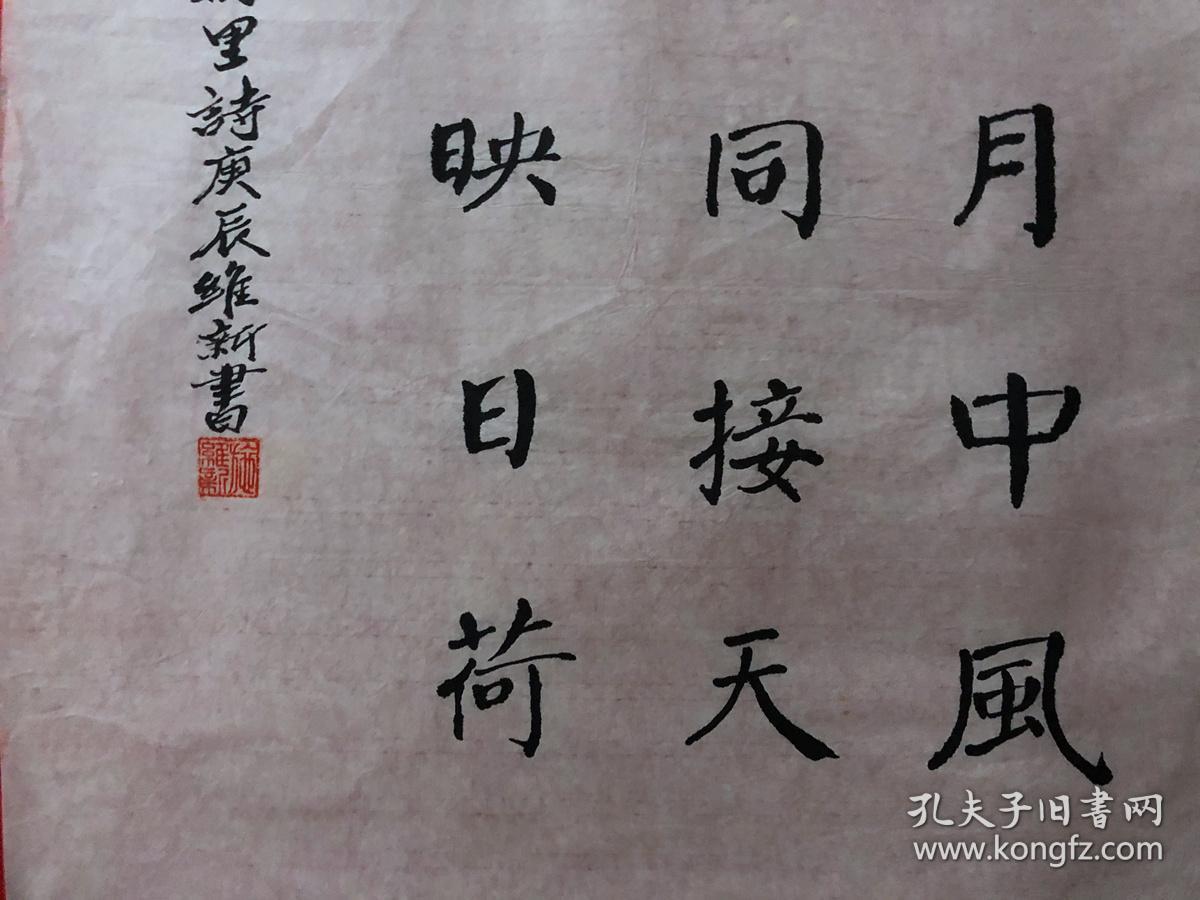 月中風
同接天
映日荷
里詩庚辰維新書
孔夫子旧書网
www.kongfz.com